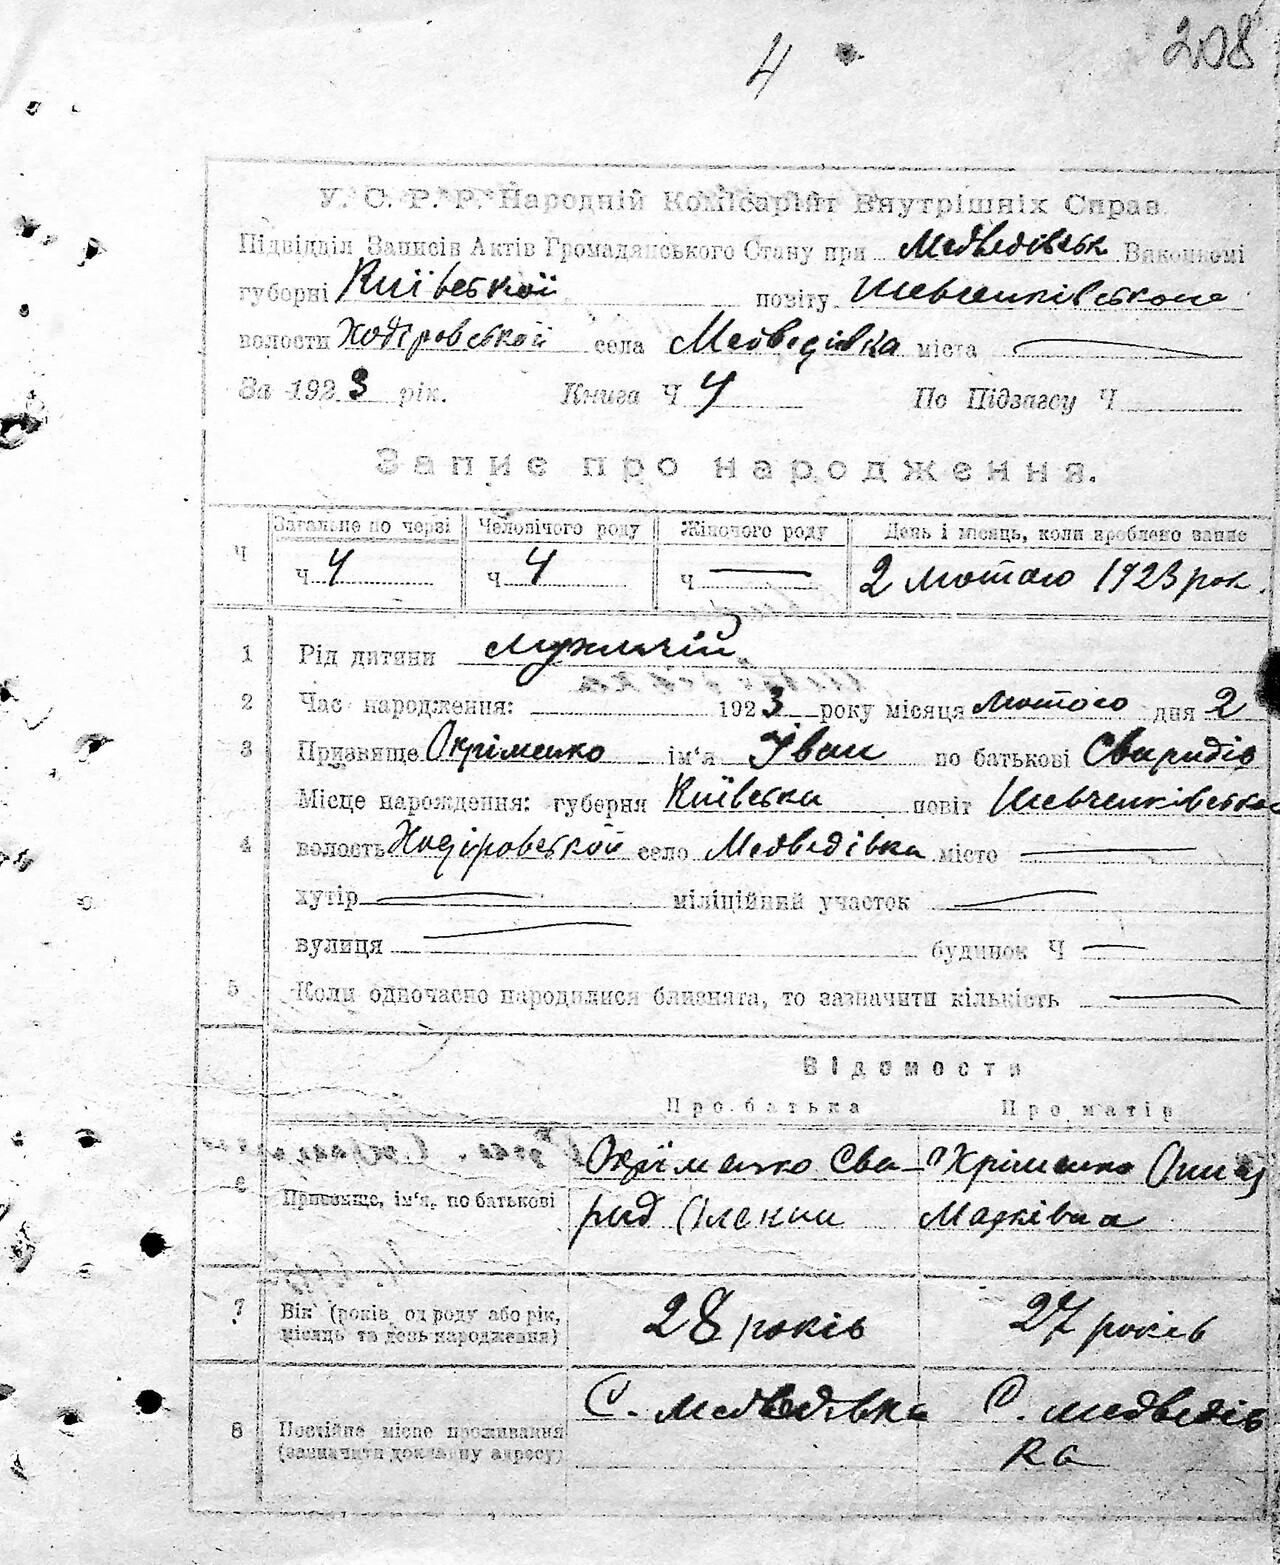 4 208
У. С. Р. Р. Народній Комісаріят Внутрішніх Справ
Підвідділ Записів Актів Громадянського Стану при Медведівськ Виконкомі
губерні Київської повіту Шевченківського
волости Ходоровської села Медведівка міста
За 1923 рік. Книга Ч 4 По Підзагсу Ч
Запис про народження.
Ч Загальне по черзі Чоловічого роду Жіночого роду День і місяць, коли зроблено запис
ч 4 ч 4 ч — 2 лютого 1923 рок.
1 Рід дитини мужичій
2 Час народження: 1923 року місяця лютого дня 2
3 Призвище Охріменко ім'я Іван по батькові Свиридів
Місце нарождення: губерня Київська повіт Шевченківська
4 волость село Медведівка місто —
хутір — міліційний участок —
вулиця — будинок Ч —
5 Коли одночасно народилися близнята, то зазначити кількість —
Відомости
Про батька Про матір
Охріменко Сви- Охріменко
6 Призвище, ім'я, по батькові рид Марківна
7 Вік (років од роду або рік, місяць та день народження) 28 років 27 років
8 Постійне місце проживання (зазначити докладну адресу) С. Медведівка С. Медведів
ка